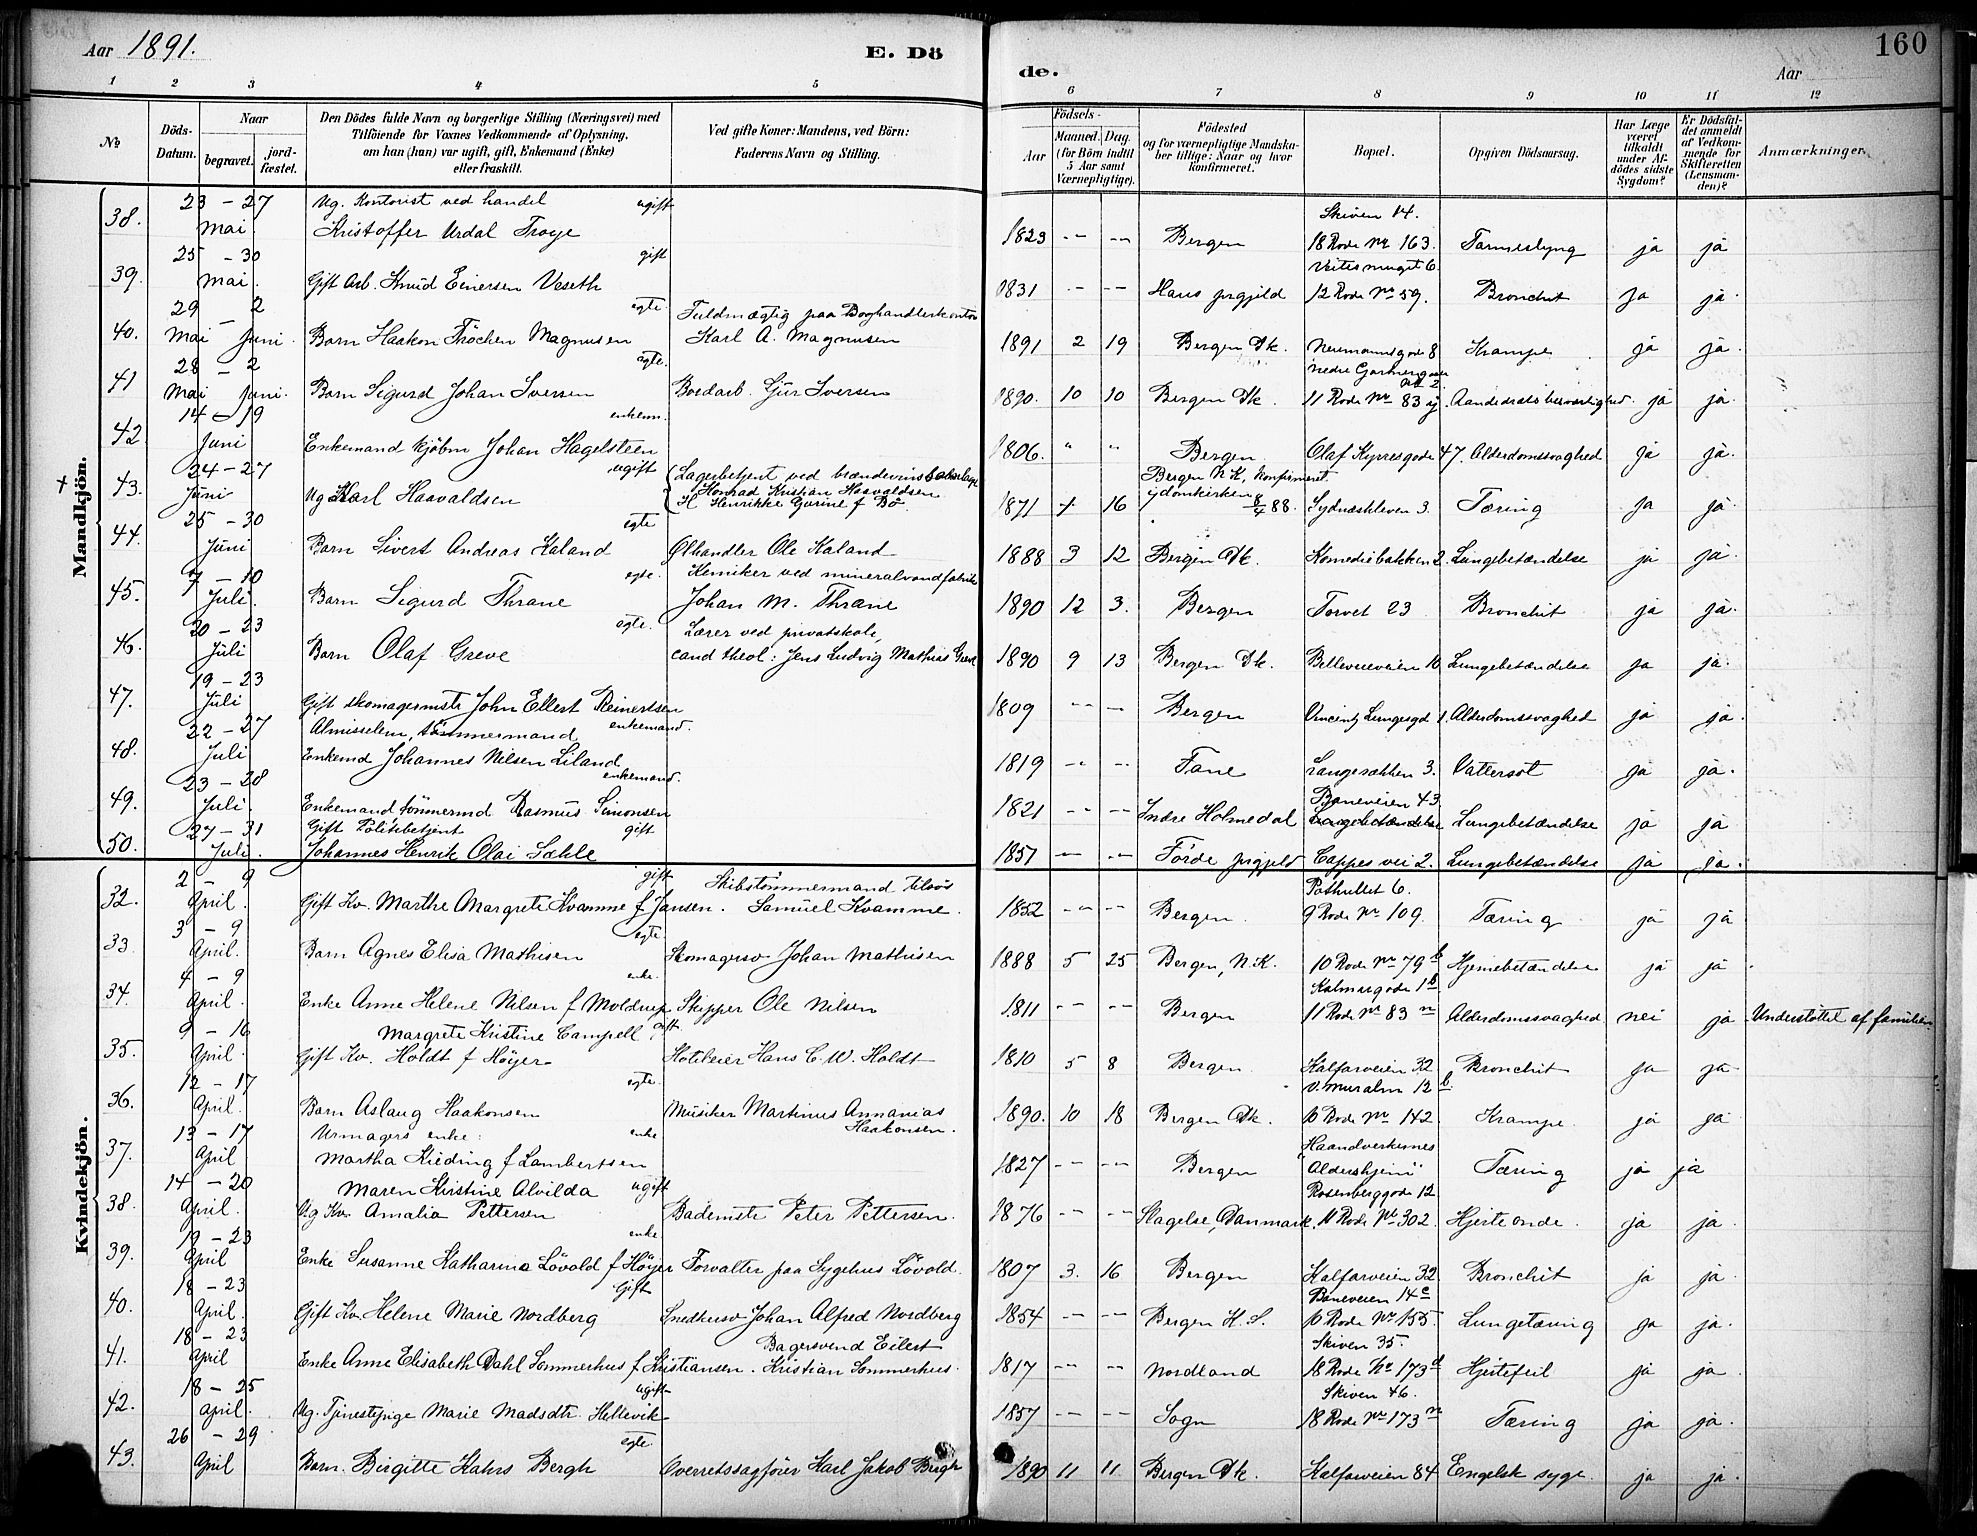 Aar 1891.
E. Dö
de.
Aar
160
1 2 3 4 5 6 7 8 9 10 11 12
No
Döds-Datum.
Naar
begravet.
jord-fæstet.
Den Dödes fulde Navn og borgerlige Stilling (Næringsvei) med
Tilföiende for Voxnes Vedkommende af Oplysning,
om han (hun) var ugift, gift, Enkemand (Enke)
eller fraskilt.
Ved gifte Koner: Mandens, ved Börn:
Faderens Navn og Stilling.
Födsels-
Aar
Maaned. Dag.
(for Börn indtil
5 Aar samt
Værnepligtige).
Födested
og for værnepligtige Mandska-
ber tillige: Naar og hvor
konfirmeret.
Bopæl.
Opgiven Dödsaarsag.
Har Læge
været
tilkaldt
under Af-
dödes sidste
Sygdom?
Er Dödsfal-
det anmeldt
af Vedkom-
mende for
Skifteretten
(Lensman-
den)?
Anmærkninger.
Mandkjön.
38. 23 – 27 mai Ug. Kontorist ved handel ugift
Kristoffer Urdal Troye 1823 -- -- Bergen Skiven 14. 18 Rode No 163. Tarmeslyng ja ja
39. 25 – 30 mai. gift
Gift Arb. Knud Einersen Veseth 1831 -- -- Haus prgjeld 12 Rode No 59. Bronchit ja ja.
40. 29 Mai – 2 Juni. egte Fuldmægtig paa Boghandlerkontor
Barn Haakon Fröchen Magnusen Karl A. Magnusen 1891 2 19 Bergen Dk. Neumannsgade 8 Krampe ja ja.
41 28 Mai – 2 Juni. egte.
Barn Sigurd Johan Iversen Bordarb. Gjür Iversen 1890. 10 10 Bergen Dk. 11 Rode No 83 Aandedrætsbesværlighed. ja ja.
42 14 – 19 Juni enkem.
Enkemand kjöbm Johan Hagelsteen 1806. " " Bergen. Olaf Kyrresgade 47. Alderdomssvaghed ja ja.
+ 43. 24 – 27 Juni ugift Lagerbetjent ved
Ug Karl Haavaldsen Konrad Kristian Haavaldsen
H Henrikke Gurine f Bö. 1871 4 16 Bergen N K, Konfirmeret i domkirken 8/4 88. Sydnæskleven 3. Tæring ja ja.
44. 25 – 30 Juni egte
Barn Sivert Andreas Kaland Ølhandler Ole Kaland 1888 3 12 Bergen Dk. Komediebakken 2. Lungebetændelse ja ja.
45. 7 – 10 Juli. egte. Kemiker ved mineralvandfabrik
Barn Sigurd Thrane Johan M. Thrane 1890 12 3. Bergen Torvet 23 Bronchit ja ja.
46. 20 – 23 Juli egte. Lærer ved privatskole,
Barn Olaf Greve cand theol: Jens Ludvig Mathias Greve 1890 9 13 Bergen Dk. Bellevueveien 10 Lungebetændelse ja ja.
47. 19 – 23 Juli
Gift skomagermstr John Ellert Reinertsen 1809 -- -- Bergen Vincentz Lungesgd 1. Alderdomssvaghed ja ja.
48. 22 – 27 Juli Almisselem, tömmermand enkemand.
Enkemd Johannes Nilsen Liland 1819 -- -- Fane Langesækken 3. Vattersot ja ja.
49. 23 – 28 Juli. enkemand.
Enkemand tömmermd Rasmus Simonsen 1821 -- -- Indre Holmedal Baneveien 43. Lungebetændelse ja ja
50. 27 – 31 Juli. Gift Politibetjent gift
Johannes Henrik Olai Sæhle 1857 -- -- Förde prgjeld Cappes vei 2. Lungebetændelse ja ja.
Kvindekjön.
32. 2 – 9 April. gift Skibstömmermand tilsös
Gift Kv. Marthe Margrete Kvamme f Jansen. Samuel Kvamme. 1852 -- -- Bergen. Pothullet 6. 9 Rode No 109. Tæring ja ja
33. 3 – 9 April. egte.
Barn Agnes Elisa Mathisen Skomagersv Johan Mathisen 1888 5 25 Bergen, N.K. 10 Rode No 79 b Hjernebetændelse ja ja.
34. 4 – 9 April. enke.
Enke Anne Helene Nilsen f Moldrup Skipper Ole Nilsen 1811 -- -- Bergen Kalmargade 1 b 11 Rode No 83 n Alderdomssvaghed nei ja Understöttet af familien
35. 9 – 16 April. Margrete Kristine Campell gift.
Gift Kv. Holdt f Höyer Hotileier Hans C. W. Holdt 1810 5 8 Bergen Kalfarveien 32 Bronchit ja ja
36. 12 – 17 April. egte.
Barn Aslaug Haakonsen Musiker Martinus Annanias Haakonsen. 1890. 10 18 Bergen Dk. V. Muralm 12 b. 6 Rode No 142. Krampe. ja ja
37. 13 – 17 April Urmagers enke: enke
Martha Kieding f Lambertsen 1827 -- -- Bergen Haandverkernes "Aldershjem" Tæring ja ja
38. 14 – 20 April. Maren Kirstine Alvilda ugift
Ug Kv. Amalia Pettersen Bademstr Peter Pettersen. 1876 -- -- Slagelse, Danmark. Rosenberggade 12 11 Rode No 302. Hjerteonde. ja ja.
39. 19 – 23 April enke
Enke Susanne Katharina Lövold f Höyer Forvalter paa Sygehus Lövold. 1807 3. 16 Bergen Kalfarveien 32 Bronchit ja ja.
40. 18 – 23 April. Gift
Gift Kv. Helene Marie Nordberg Snedkersv Johan Alfred Nordberg 1854 -- -- Bergen H. S. Baneveien 14 c 6 Rode No 155. Lungetæring ja ja.
41. 18 – 23 April Bagersvend Eilert
Enke Anne Elisabeth Dahl Sommerhus f Kristiansen. Kristian Sommerhus. 1817 -- -- Nordland Skiven 35. 18 Rode No 173 d Hjertefeil ja ja.
42. 18 – 25 April. ugift
Ug. Tjenestepige Marie Madsdtr. Hellevik 1857 -- -- Sogn Skiven 46. 18 Rode No 173 m Tæring ja ja.
43. 26 – 29 April egte.
Barn. Birgitte Kahrs Bergh Overretssagförer Karl Jakob Bergh 1890 11 11 Bergen Dk. Kalfarveien 84 Engelsk syge. ja ja.